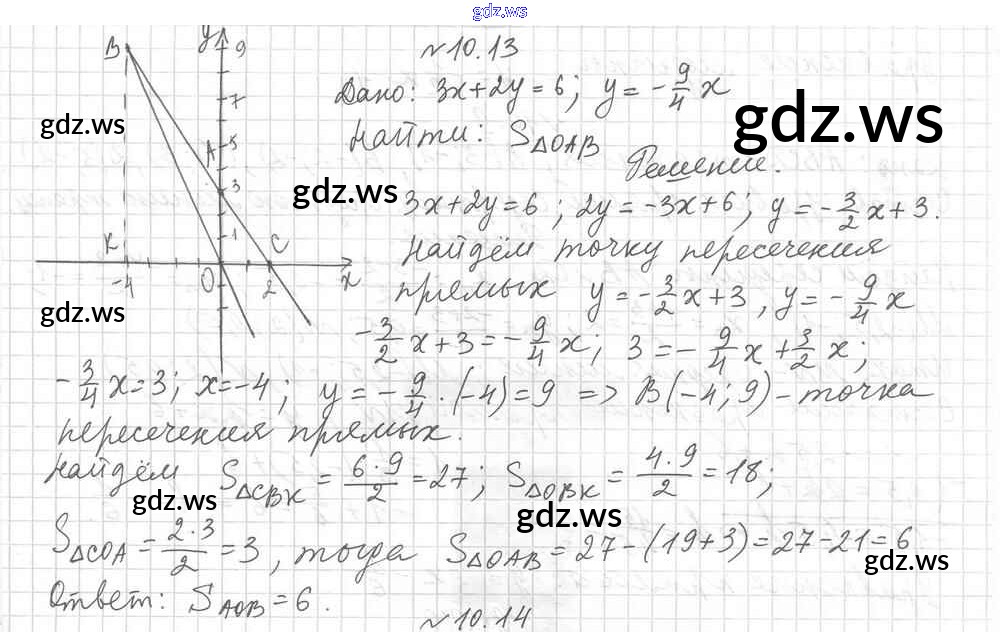 gdz.ws
№10.13
Дано: 3x+2y=6; y=-9/4 x
Найти: S△OAB
Решение.
3x+2y=6; 2y=-3x+6; y=-3/2 x+3.
Найдём точку пересечения
прямых y=-3/2 x+3, y=-9/4 x
-3/2 x+3=-9/4 x; 3=-9/4 x+3/2 x;
-3/4 x=3; x=-4; y=-9/4·(-4)=9 => B(-4;9)-точка
пересечения прямых.
Найдём S△CBK=6·9/2=27; S△OBK=4·9/2=18;
S△COA=2·3/2=3, тогда S△OAB=27-(19+3)=27-21=6
Ответ: SAOB=6.
№10.14
B
y
9
7
5
A
3
1
K
C
-4
O
2
x
gdz.ws
gdz.ws
gdz.ws
gdz.ws
gdz.ws
gdz.ws
gdz.ws